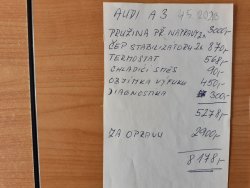 AUDI A3 4.5.20
PRUŽINA PŘ NÁPRAVY 2x 3000,-
ČEP STABILIZÁTORU 2x 870,-
TERMOSTAT 568,-
CHLADÍCÍ SMĚS 90,-
OBJÍMKA VÝFUKU 450,-
DIAGNOSTIKA 300,-
5278,-
ZA OPRAVU 2900,-
8178,-